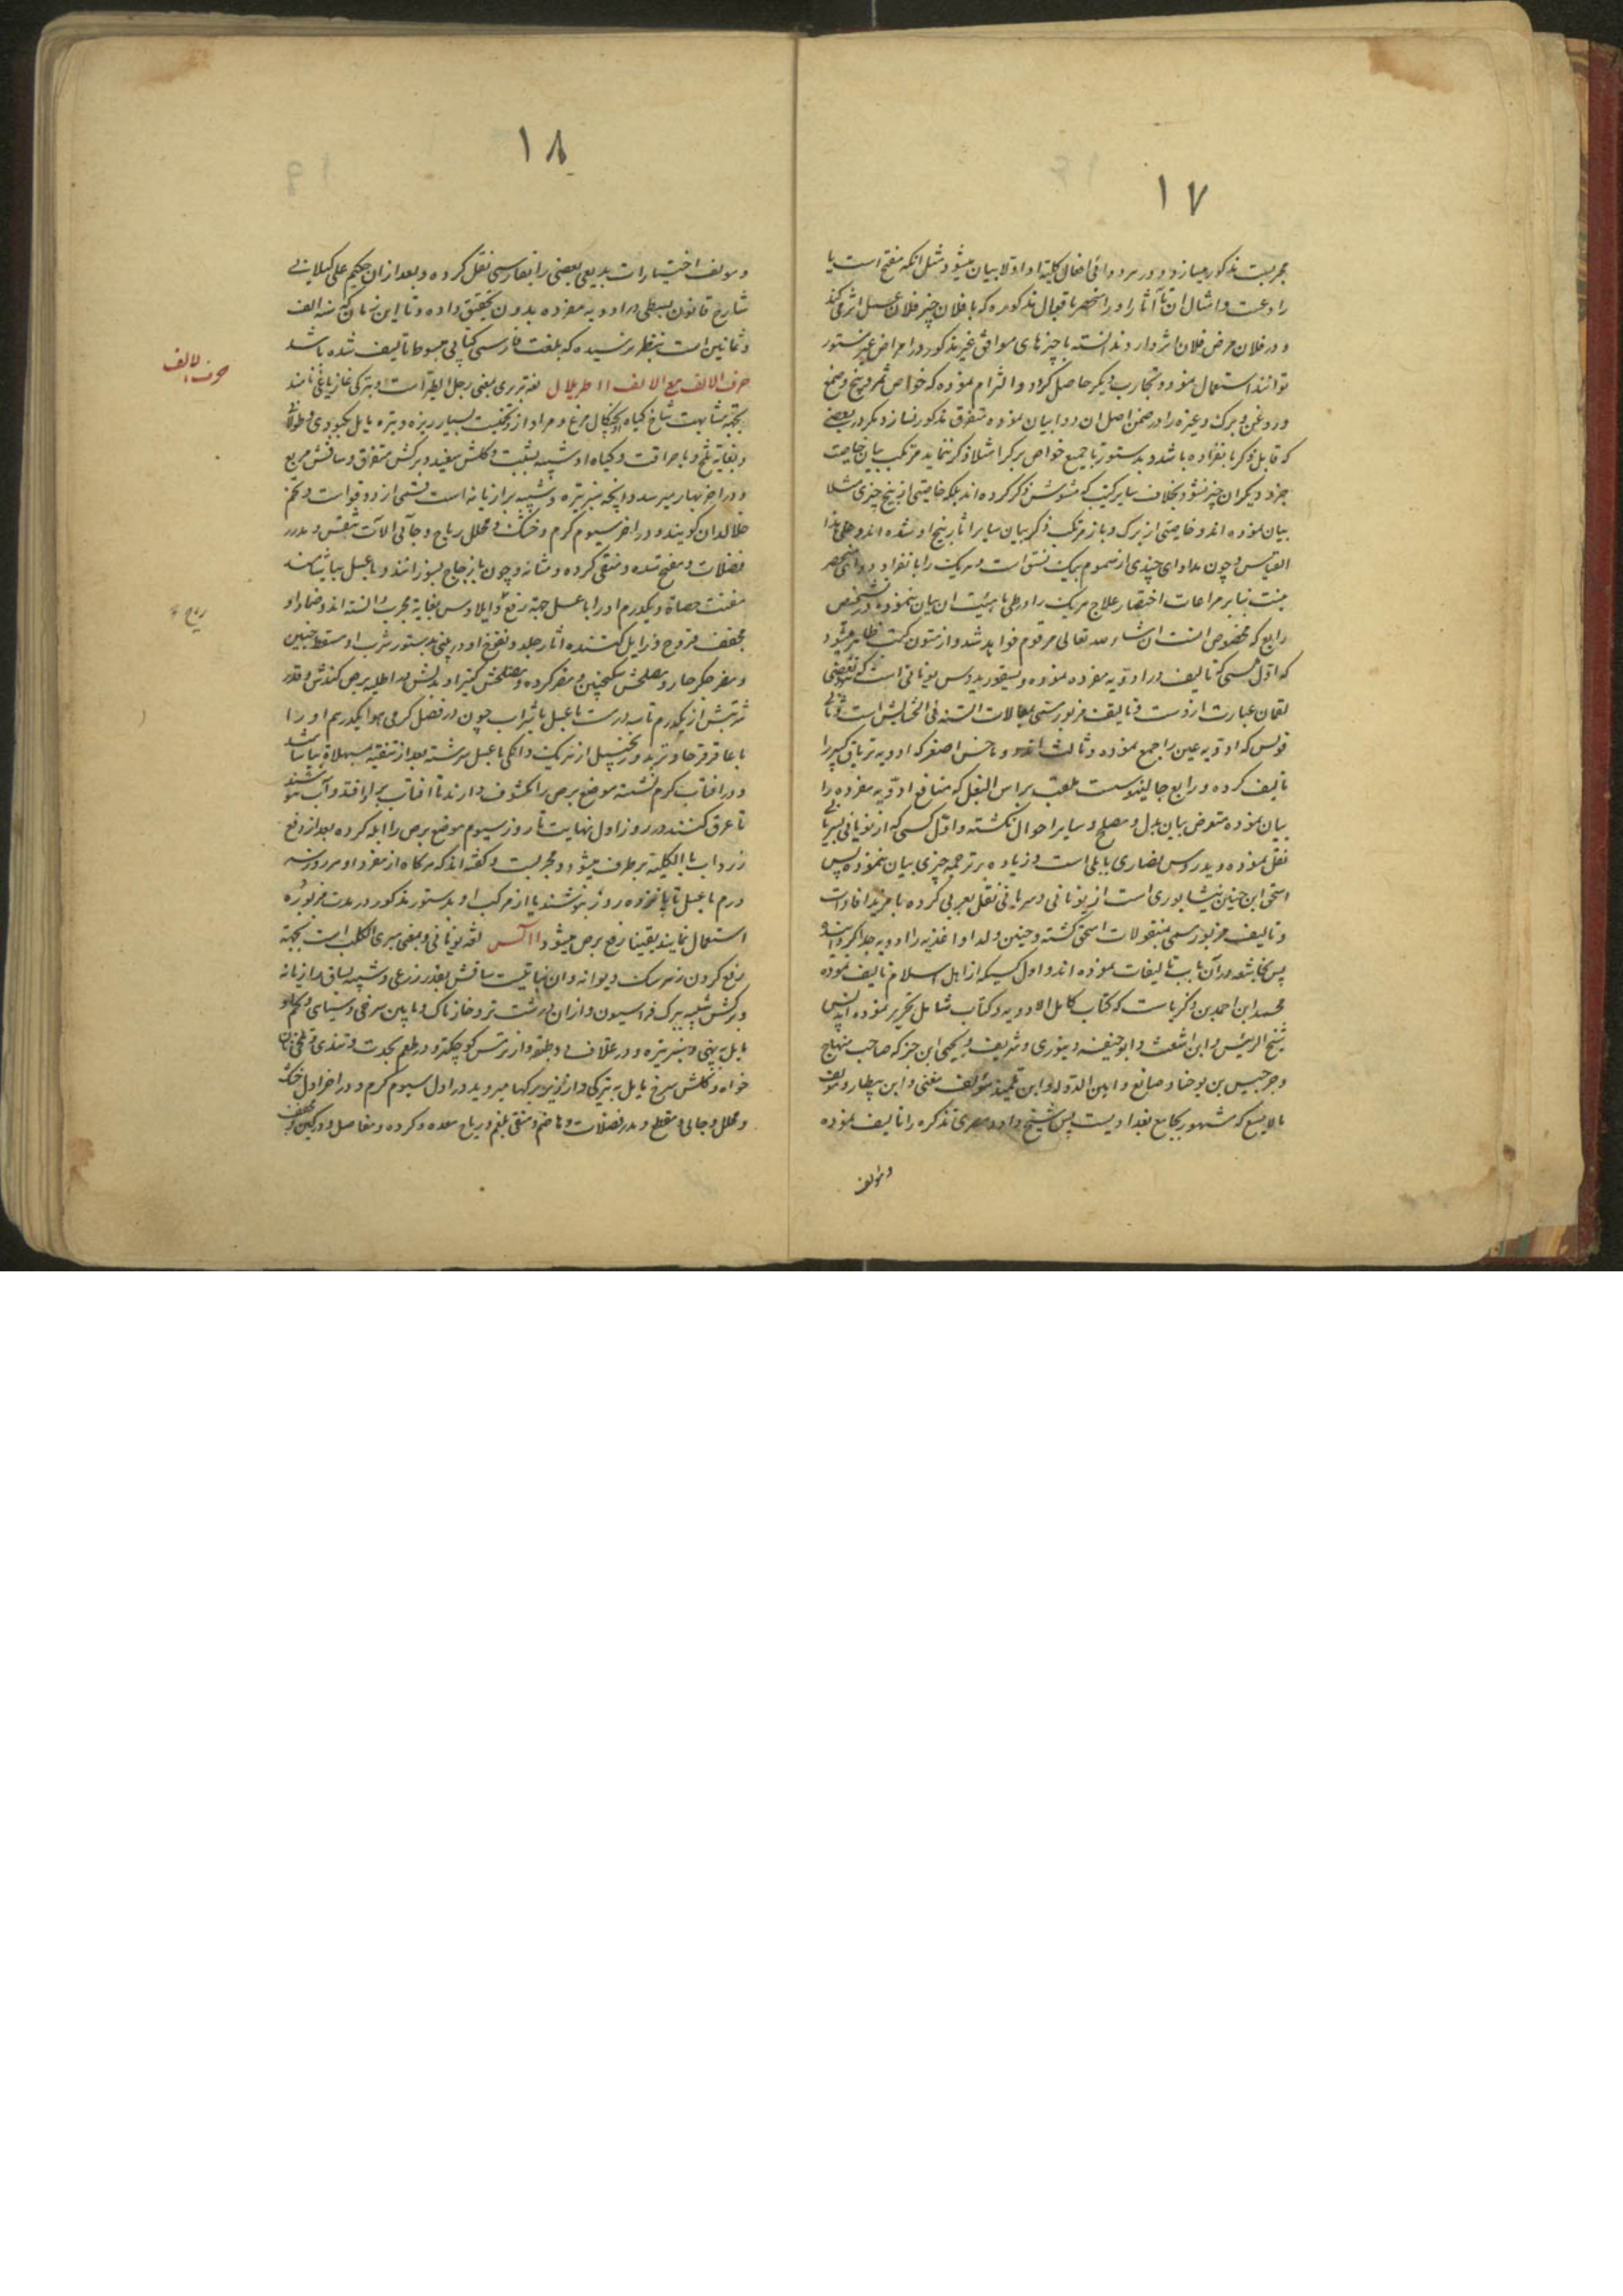 ۱۷
مجربست مذکور میسازد و در هر دوائی افعال کلیه او اولا بیان میشود مثل آنکه مفتح است یا
رادعست و امثال ان تا آثار او را منحصر باقوال مذکوره که با فلان چیز فلان عمل اثر میکند
و در فلان مرض فلان اثر دارد ندانسته با چیزهای موافق غیر مذکور در امراض غیر مسطور
توانند استعمال نمود و تجارب دیگر حاصل گردد و التزام نموده که خواص ثمر و بیخ و صمغ
و روغن و برک و غیره را در ضمن اصل ان دوا بیان نموده متفرق مذکور نسازد مگر در بعضی
که قابل ذکر بانفراده باشد و بدستور تا جمیع خواص برک را مثلا ذکر ننماید مرتکب بیان خاصیت
جزو دیگر ان چیز نشود بخلاف سایر کتب که مشوش ذکر کرده اند بلکه خاصیتی از بیخ چیزی مثلا
بیان نموده اند و خاصیتی از برک و باز مرتکب ذکر بیان سایر اثار بیخ او شده اند و علی هذا
القیاس و چون مداوای چندی از سموم بیک نسق است و هریک را بانفراد دوائی منحصر
نیست بنابر مراعات اختصار علاج هریک را در طی ماهیت ان بیان ننموده در تشخیص
رابع که مخصوص انست ان شاء الله تعالی مرقوم خواهد شد و از متون کتب ظاهر میشود
که اول کسی که تالیف در ادویه مفرده نموده دیسقوریدوس یونانی است که بعضی
لقمان عبارت از اوست و تالیف مزبور مسمی بمقالات الستة فی الحشایش است و ثانی
فولس که ادویه عین را جمع نموده و ثالث اندروماخس اصغر که ادویه تریاق کبیر را
تالیف کرده و رابع جالینوس است ملقب براس البغل که منافع ادویه مفرده را
بیان نموده متعرض بیان بدل و مصلح و سایر احوال نگشته و اول کسی که از یونانی بسریانی
نقل نموده دیدروس نصاری بابلی است و زیاده بر ترجمه چیزی بیان ننموده پس
اسحق ابن حنین نیشابوری است از یونانی و سریانی نقل بعربی کرده با مزید افادات
و تالیف مزبور مسمی بمنقولات اسحق گشته و حنین ولد او اغذیه را از ادویه جدا کرده
پس نجاشعه در آن باب تالیفات نموده اند و اول کسیکه از اهل اسلام تالیف نموده
محمد ابن احمد بن زکریاست که کتاب کامل الادویه و کتاب شامل تحریر نموده اند پس
شیخ الرئیس و ابن اشعث و ابو حنیفه دینوری و شریف و یحیی ابن جزله صاحب منهاج
و جرجیس بن یوحنا و صانع و امین الدوله و ابن تلمیذ مؤلف مغنی و ابن بیطار و مؤلف
مالایسع که مشهور بجامع بغدادیست پس شیخ داود مصری تذکره را تالیف نموده
و مؤلف
۱۸
و مولف اختیارات بدیعی بعضی را بفارسی نقل کرده و بعد از ان حکیم علی گیلانی
شارح قانون بسطی در ادویه مفرده بدون تحقیق داده و تا این زمان که سنه الف
و ثمانین است بنظر نرسیده که بلغت فارسی کتابی مبسوط تالیف شده باشد
حرف الالف مع الالف ااطریلال لغة بربری بمعنی رجل الطیر است و بترکی غازیاغی نامند
بجهة مشابهت شاخ گیاه او بچنگال مرغ و مراد از او تخمیست بسیار ریزه و تیره مایل بکبودی و طولانی
و بغایة تلخ و با حراقت و گیاه او شبیه بشبت و گلش سفید و برگش متفرق و ساقش مربع
و در آخر بهار میرسد و انچه سبز تیره و شبیه برازیانه است قسمی از دوقواست و تخم
خلالدان گویند و در اخر سیوم گرم و خشک و محلل ریاح و جالی الات تنفس و مدرر
فضلات و مفتح سده و منقی گرده و مثانه و چون با زجاج بسوزانند و با عسل بیاشامند
مفتت حصاة و یکدرم او را با عسل جهة رفع و ایلاوس بغایة مجرب دانسته اند و ضماد او
مجفف قروح و زایل کننده اثار جلد و نفوخ او در بینی بدستور شرب او مسقط جنین
و مضر جگر حار و مصلحش سکنجبین و مضر گرده و مصلحش کتیرا و بدلش در اطلیه برص کندش و قدر
شربتش از یکدرم تا سه درمست با عسل یا شراب چون در فصل گرمی هوا یکدرم او را
با عاقرقرحا و تربد و زنجبیل از هریک دانگی با عسل سرشته بعد از تنقیه بمسهلات بیاشامند
و در افتاب گرم نشسته موضع برص را مکشوف دارند تا افتاب بر او افتد و آب ننوشند
تا عرق کنند در روز اول نهایت تا روز سیوم موضع برص را ابله کرده بعد از دفع
زرداب بالکلیه برطرف میشود و مجربست و گفته اند که هرگاه از مفرد او هر روز سه
درم با عسل تا پانزده روز بنوشند یا از مرکب او بدستور مذکور در مدت مزبوره
استعمال نمایند یقینا رفع برص میشود االسن لغة یونانی و بمعنی مبری الکلب است بجهة
رفع کردن زهر سک دیوانه و ان نباتیست ساقش بقدر زرعی و شبیه بساق رازیانه
و برگش شبیه ببرک فراسیون و از ان درشت تر و خارناک و مابین سرخی و سیاهی و گلش
مایل به پهنی و سبز تیره و در غلاف دو طبقه و از ترمس کوچکتر و در طعم بحدت و تندی و تلخی
خواه و گلش سرخ مایل به تیرگی و از زیر برگها میروید در اول سیوم گرم و در اخر اول خشک
و محلل و جالی و مقطع و مدر فضلات و هاضم و منقی بلغم و ریاح معده و گرده و مفاصل و ورکین و مجفف
حرف الالف
ریاح